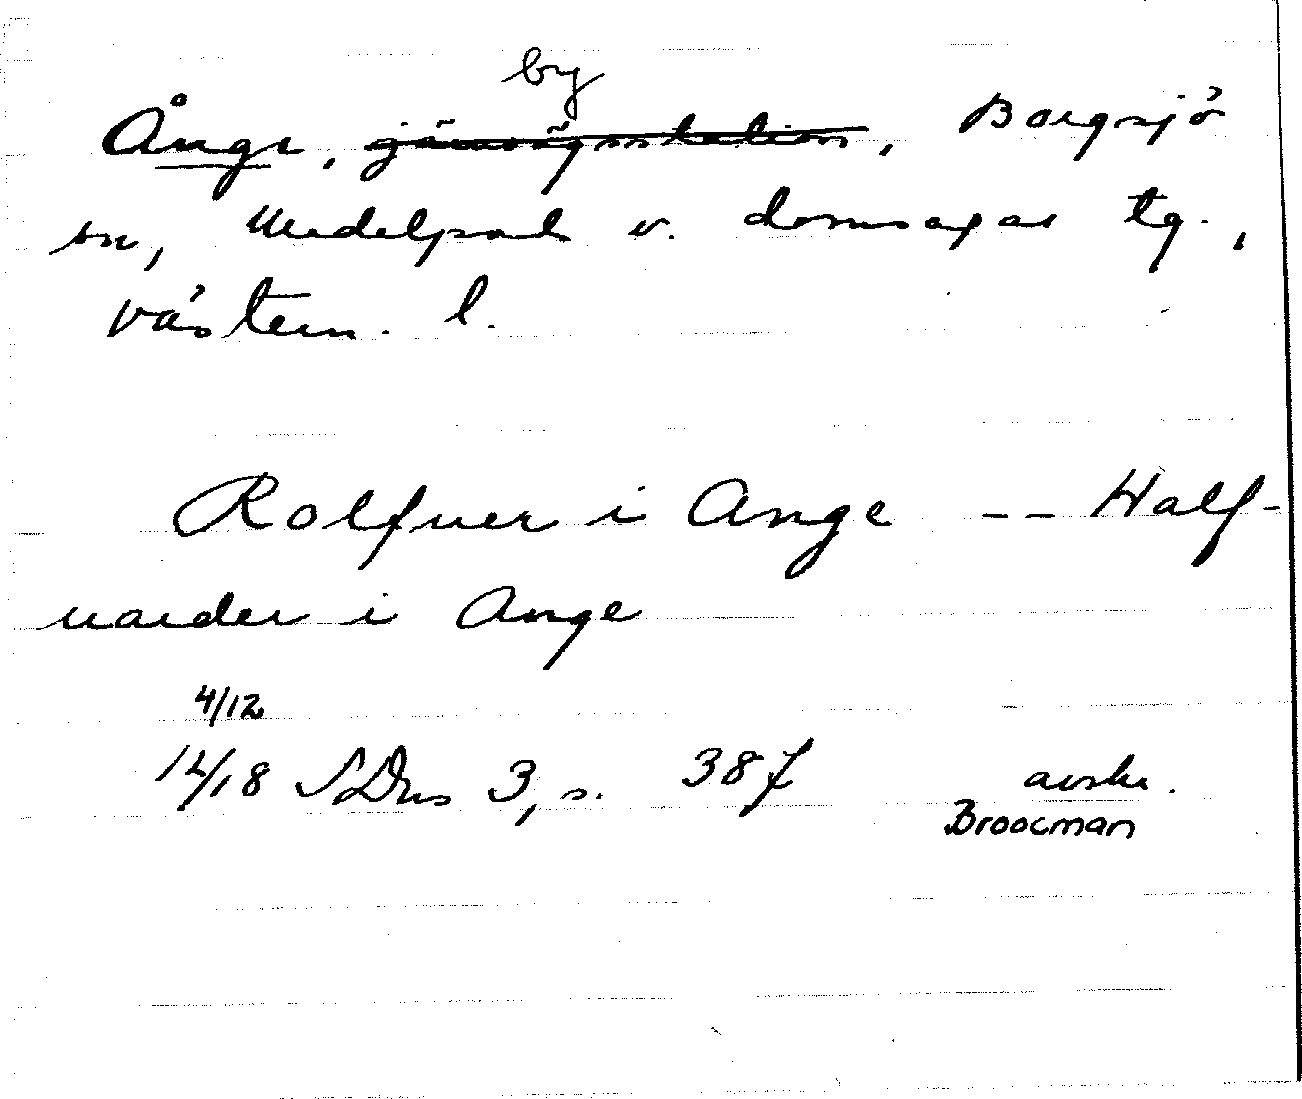 by
Ånge, järnvägsstation, Borgsjö
sn, Medelpads v. domsagas tg.,
västern. l.
Rolfuer i Ange -- Half-
uarder i Ange
4/12
1418 SDns 3, s. 387
avskr.
Broocman